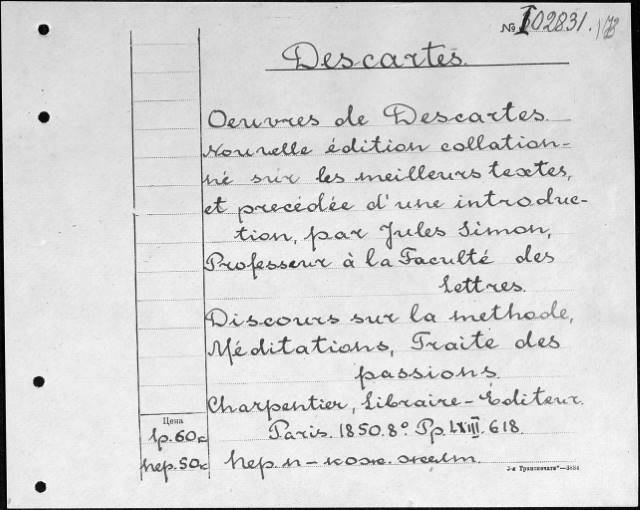 № I 102831. 1/73
Descartes.
Oeuvres de Descartes.
Nouvelle édition collation-
né sur les meilleurs textes,
et precédée d'une introduc-
tion, par Jules Simon,
Professeur à la Faculté des
Lettres.
Discours sur la methode,
Méditations, Traite des
passions.
Charpentier, Libraire-Éditeur.
Paris. 1850. 8° Pp. LXIII. 618.
Цена
1р. 60к
пер. 50к
пер. п-кож. желт.
2-я Транспечать"—3884